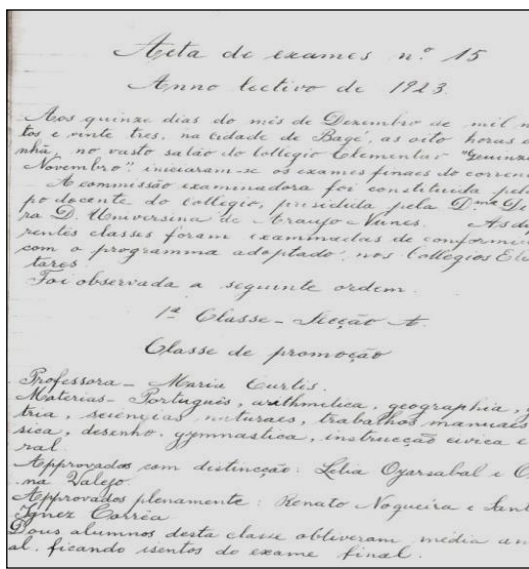 Acta de exames n.º 15
Anno lectivo de 1923
Aos quinze dias do mês de Dezembro de mil n
tos e vinte tres, na cidade de Bagé, as oito horas d
nhã, no vasto salão do Collegio Elementar "Quinz
Novembro" iniciaram-se os exames finaes do corren
A commissão examinadora foi constituida pel
po docente do collegio, presidida pela D.ma Di
ra D. Universina de Araujo Nunes. As di
rentes classes foram examinadas de conformi
com o programma adoptado, nos Collegios El
tares
Foi observada a seguinte ordem.
1ª Classe - Secção A.
Classe de promoção
Professora - Maria Curtis.
Materias - Português, arithmetica, geographia,
tria, sciencias naturaes, trabalhos manuaes
sica, desenho, gymnastica, instrucção civica e
ral.
Approvados com distincção: Lelia Oyarsabal e
na Valejo.
Approvados plenamente: Renato Nogueira e Sant
Ignez Corrêa
Dous alumnos desta classe obtiveram média an
al, ficando isentos do exame final.